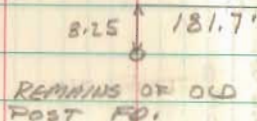 8.25 181.7'
REMAINS OF OLD
POST FD.